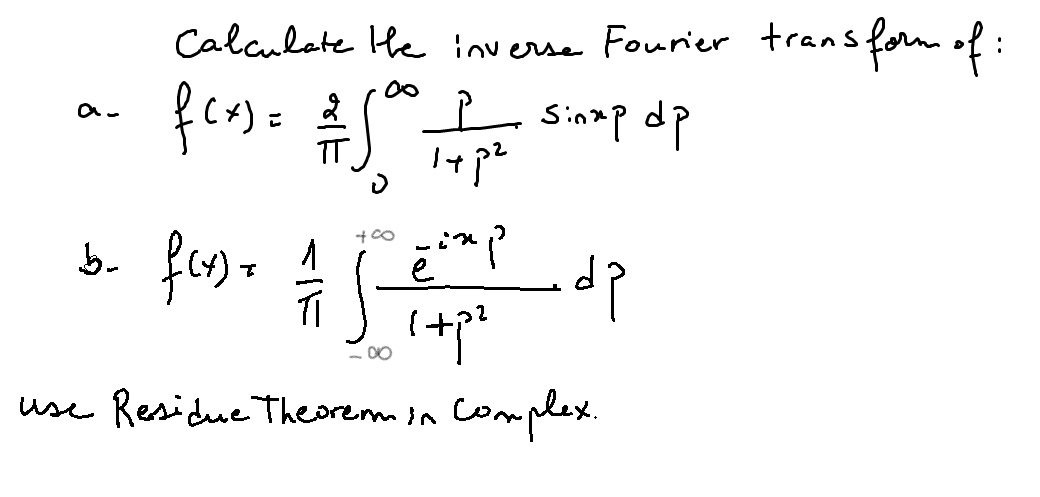 Calculate the inverse Fourier transform of:
a- f(x) = \frac{2}{\pi} \int_{0}^{\infty} \frac{p}{1+p^2} sinxp dp
b- f(x) = \frac{1}{\pi} \int_{-\infty}^{+\infty} \frac{e^{-ixp}}{1+p^2} dp
use Residue Theorem in complex.